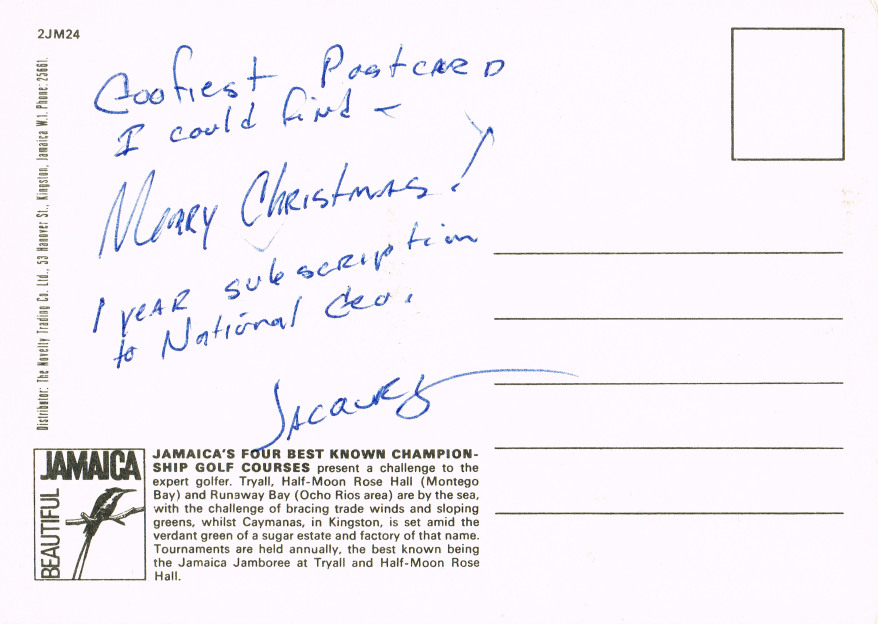 2JM24
Goofiest Postcard
I could find –
Merry Christmas!
1 year subscription
to National Geo.
Jacques
Distributor: The Novelty Trading Co. Ltd., 53 Hanover St., Kingston, Jamaica W.I. Phone: 25661.
BEAUTIFUL
JAMAICA
JAMAICA'S FOUR BEST KNOWN CHAMPION-
SHIP GOLF COURSES present a challenge to the
expert golfer. Tryall, Half-Moon Rose Hall (Montego
Bay) and Runaway Bay (Ocho Rios area) are by the sea,
with the challenge of bracing trade winds and sloping
greens, whilst Caymanas, in Kingston, is set amid the
verdant green of a sugar estate and factory of that name.
Tournaments are held annually, the best known being
the Jamaica Jamboree at Tryall and Half-Moon Rose
Hall.